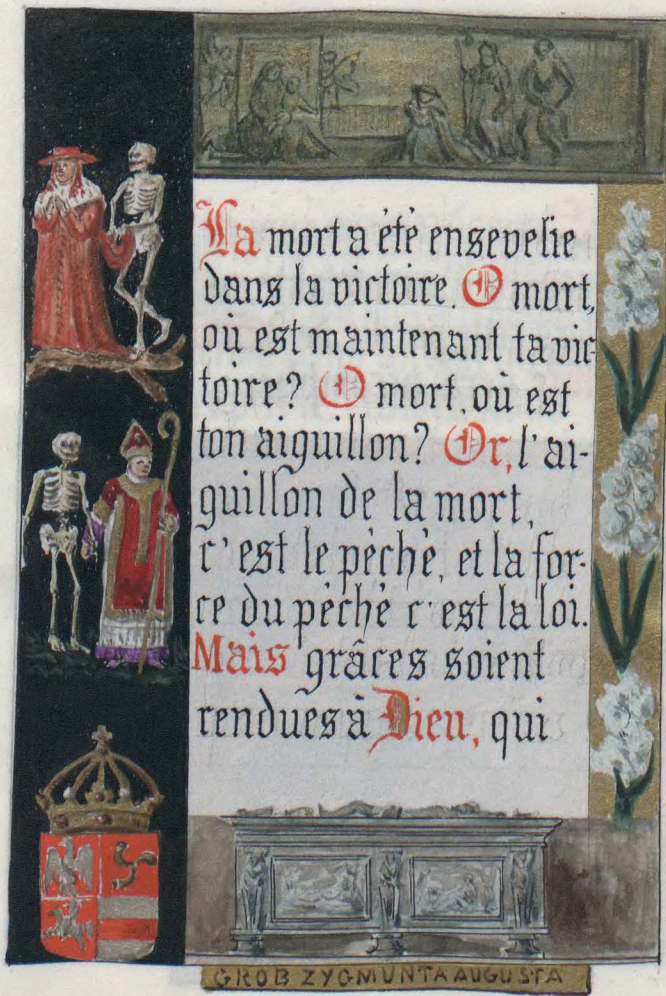 La mort a été ensevelie
dans la victoire. O mort,
où est maintenant ta vic-
toire? O mort, où est
ton aiguillon? Or, l'ai-
guillon de la mort,
c'est le péché, et la for-
ce du péché c'est la loi.
Mais grâces soient
rendues à Dieu, qui
GROB ZYGMUNTA AUGUSTA